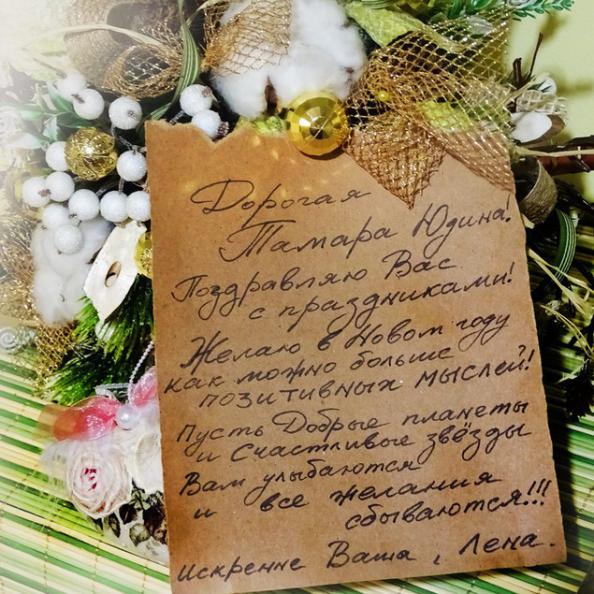 Дорогая
Тамара Юдина!
Поздравляю Вас
с праздниками!
Желаю в Новом году
как можно больше
позитивных мыслей!
Пусть Добрые планеты
и Счастливые звёзды
Вам улыбаются
и все желания
сбываются!!!
Искренне Ваша, Лена.